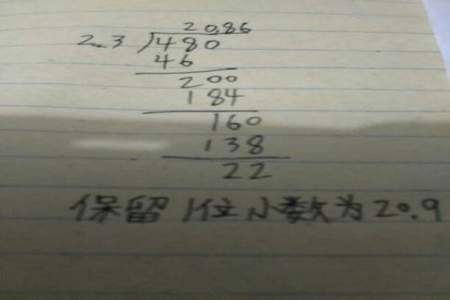 20.86
2.3 )480
46
200
184
160
138
22
保留1位小数为20.9